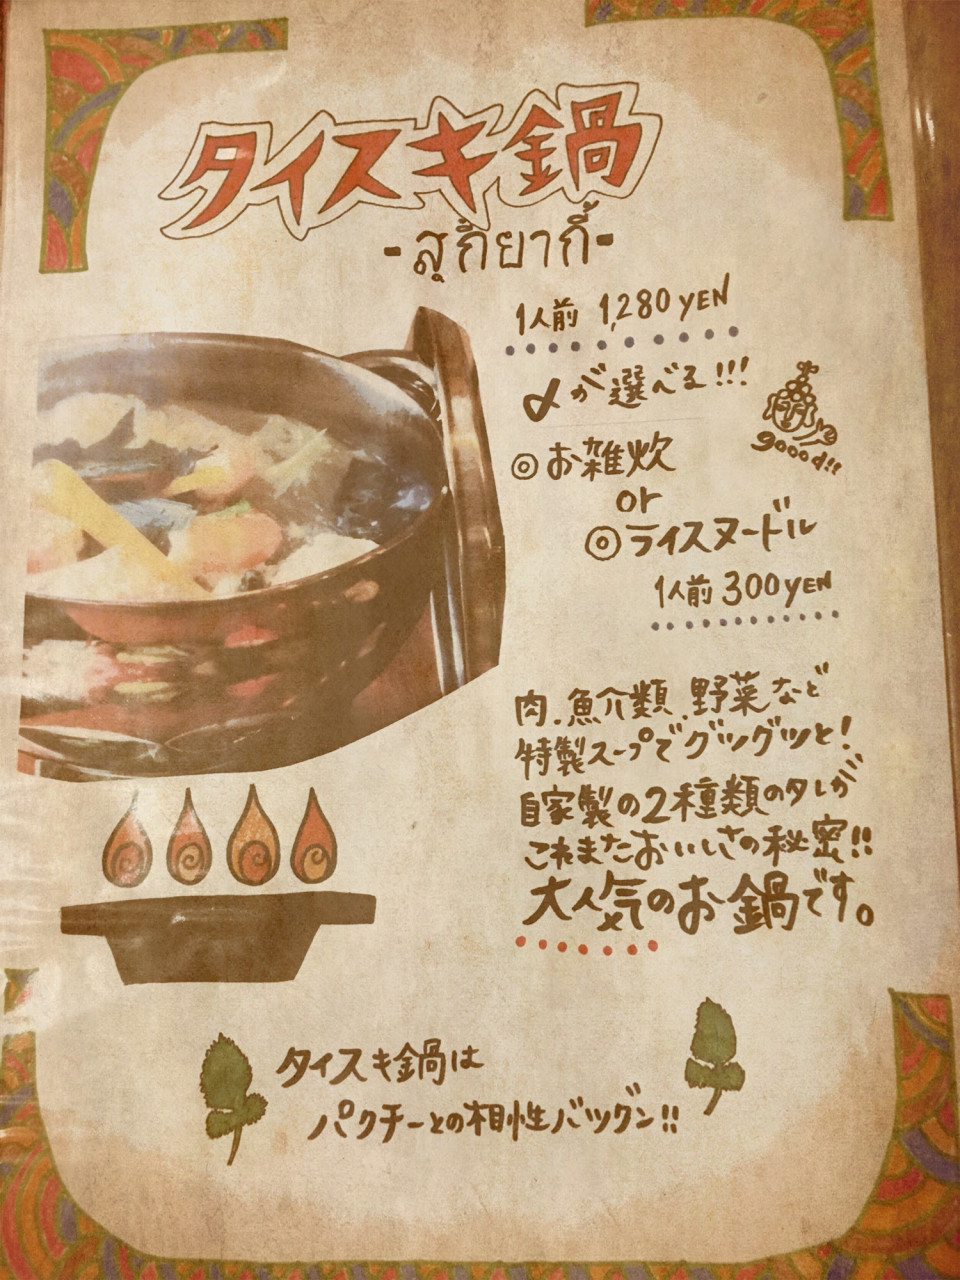 タイスキ鍋
-สุกี้ยากี้-
1人前 1,280 YEN
〆が選べる!!!
◎お雑炊
or
◎ライスヌードル
1人前 300 YEN
goood!!
肉、魚介類、野菜など
特製スープでグツグツと!
自家製の2種類のタレが
これまたおいしさの秘密!!
大人気のお鍋です。
タイスキ鍋は
パクチーとの相性バツグン!!